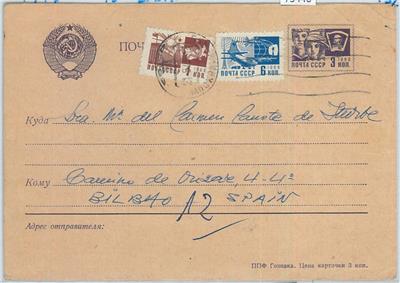 ПОЧ
ПОЧТА СССР 1966
4 КОП.
ПОЧТА СССР 1966
6 КОП.
ПОЧТА СССР 1966
3 КОП.
Куда Sra. Mª del Carmen de
Кому Camino de 4-4º
BILBAO 12 SPAIN
Адрес отправителя:
ППФ Гознака. Цена карточки 3 коп.